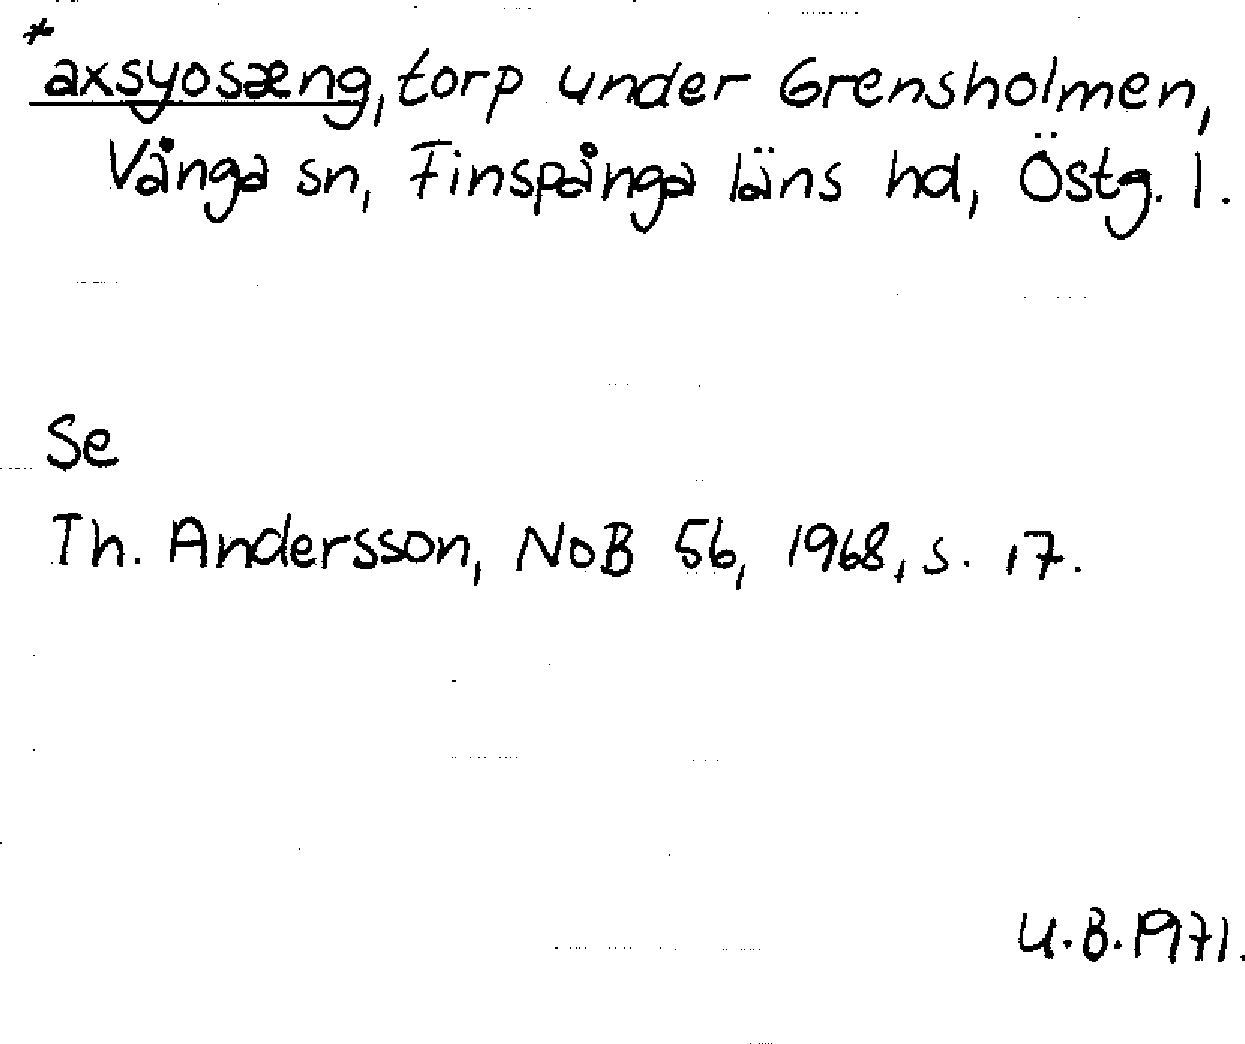 *axsyosæng, torp under Grensholmen,
Vånga sn, Finspånga läns hd, Östg. l.
Se
Th. Andersson, NoB 56, 1968, s. 17.
U.B. 1971.